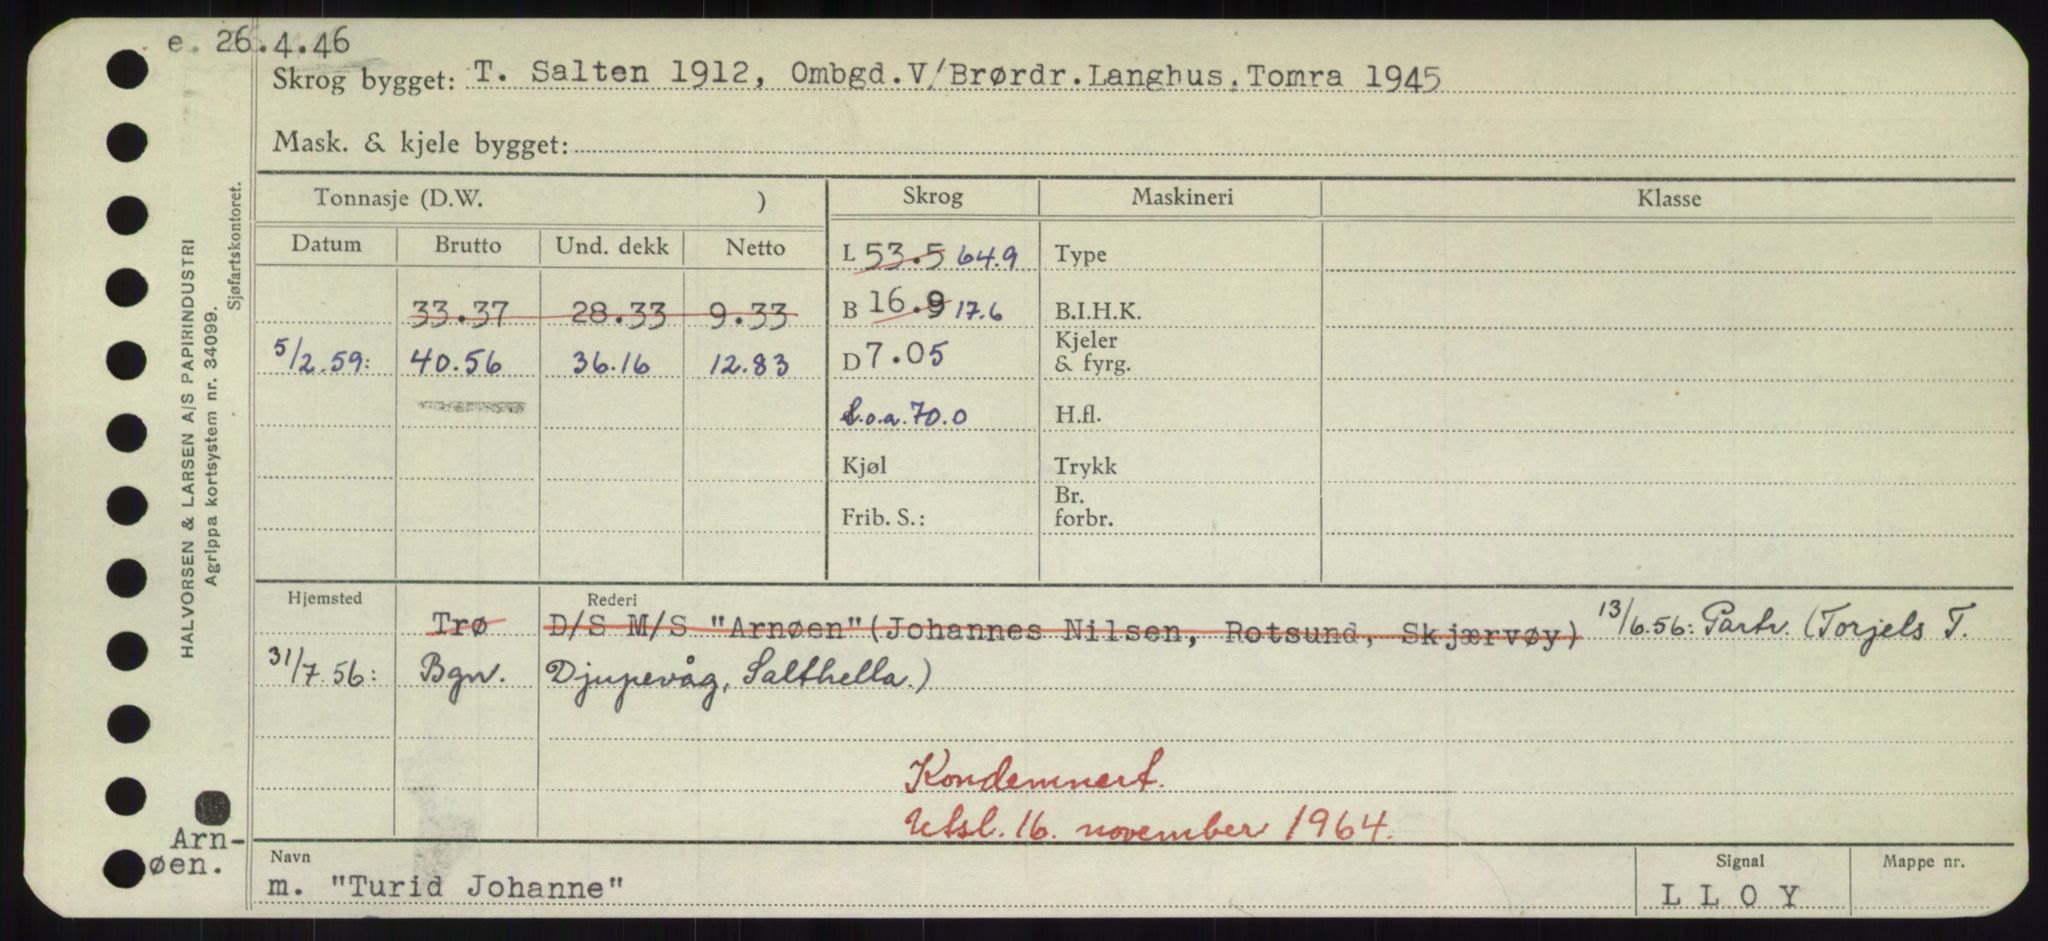 e. 26.4.46
Skrog bygget: T. Salten 1912, Ombgd.V/Brørdr.Langhus.Tomra 1945
Mask. & kjele bygget:
Tonnasje (D.W. ) Skrog Maskineri Klasse
Datum Brutto Und. dekk Netto
L 53.5 64.9 Type
33.37 28.33 9.33 B 16.9 17.6 B.I.H.K.
5/2.59: 40.56 36.16 12.83 D 7.05 Kjeler & fyrg.
L.o.a. 70.0 H.fl.
Kjøl Trykk
Frib. S.: Br. forbr.
Hjemsted Rederi
Trø D/S M/S "Arnøen" (Johannes Nilsen, Rotsund, Skjærvøy) 13/6.56: Partr. (Torjels T.
31/7.56: Bgn. Djupevåg, Salthella.)
Kondemnert.
Utsl. 16. november 1964.
Arn-
øen.
Navn Signal Mappe nr.
m. "Turid Johanne" L L O Y
HALVORSEN & LARSEN A/S PAPIRINDUSTRI
Agrippa kortsystem nr. 34099.
Sjøfartskontoret.